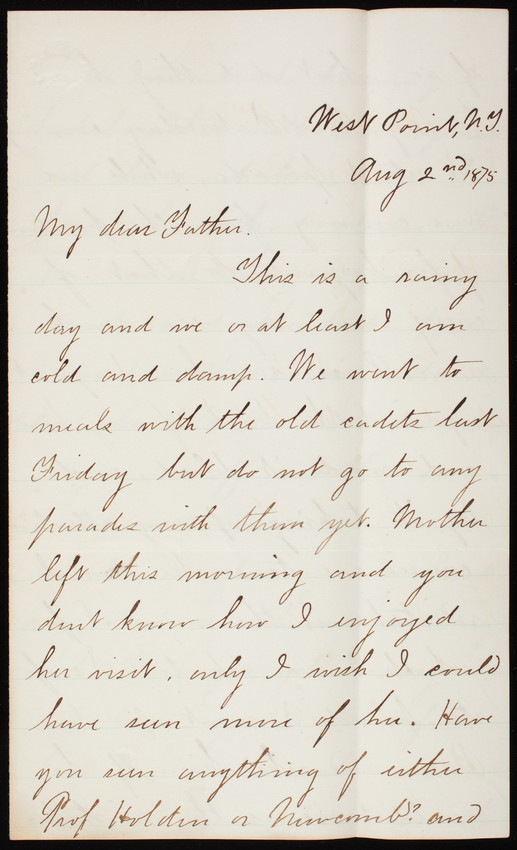 West Point, N.Y.
Aug 2nd. 1875
My dear Father.
This is a rainy
day and we or at least I am
cold and damp. We went to
meals with the old cadets last
Friday but do not go to any
parades with them yet. Mother
left this morning and you
dont know how I enjoyed
her visit, only I wish I could
have seen more of her. Have
you seen anything of either
Prof Holden or Newcomb? and